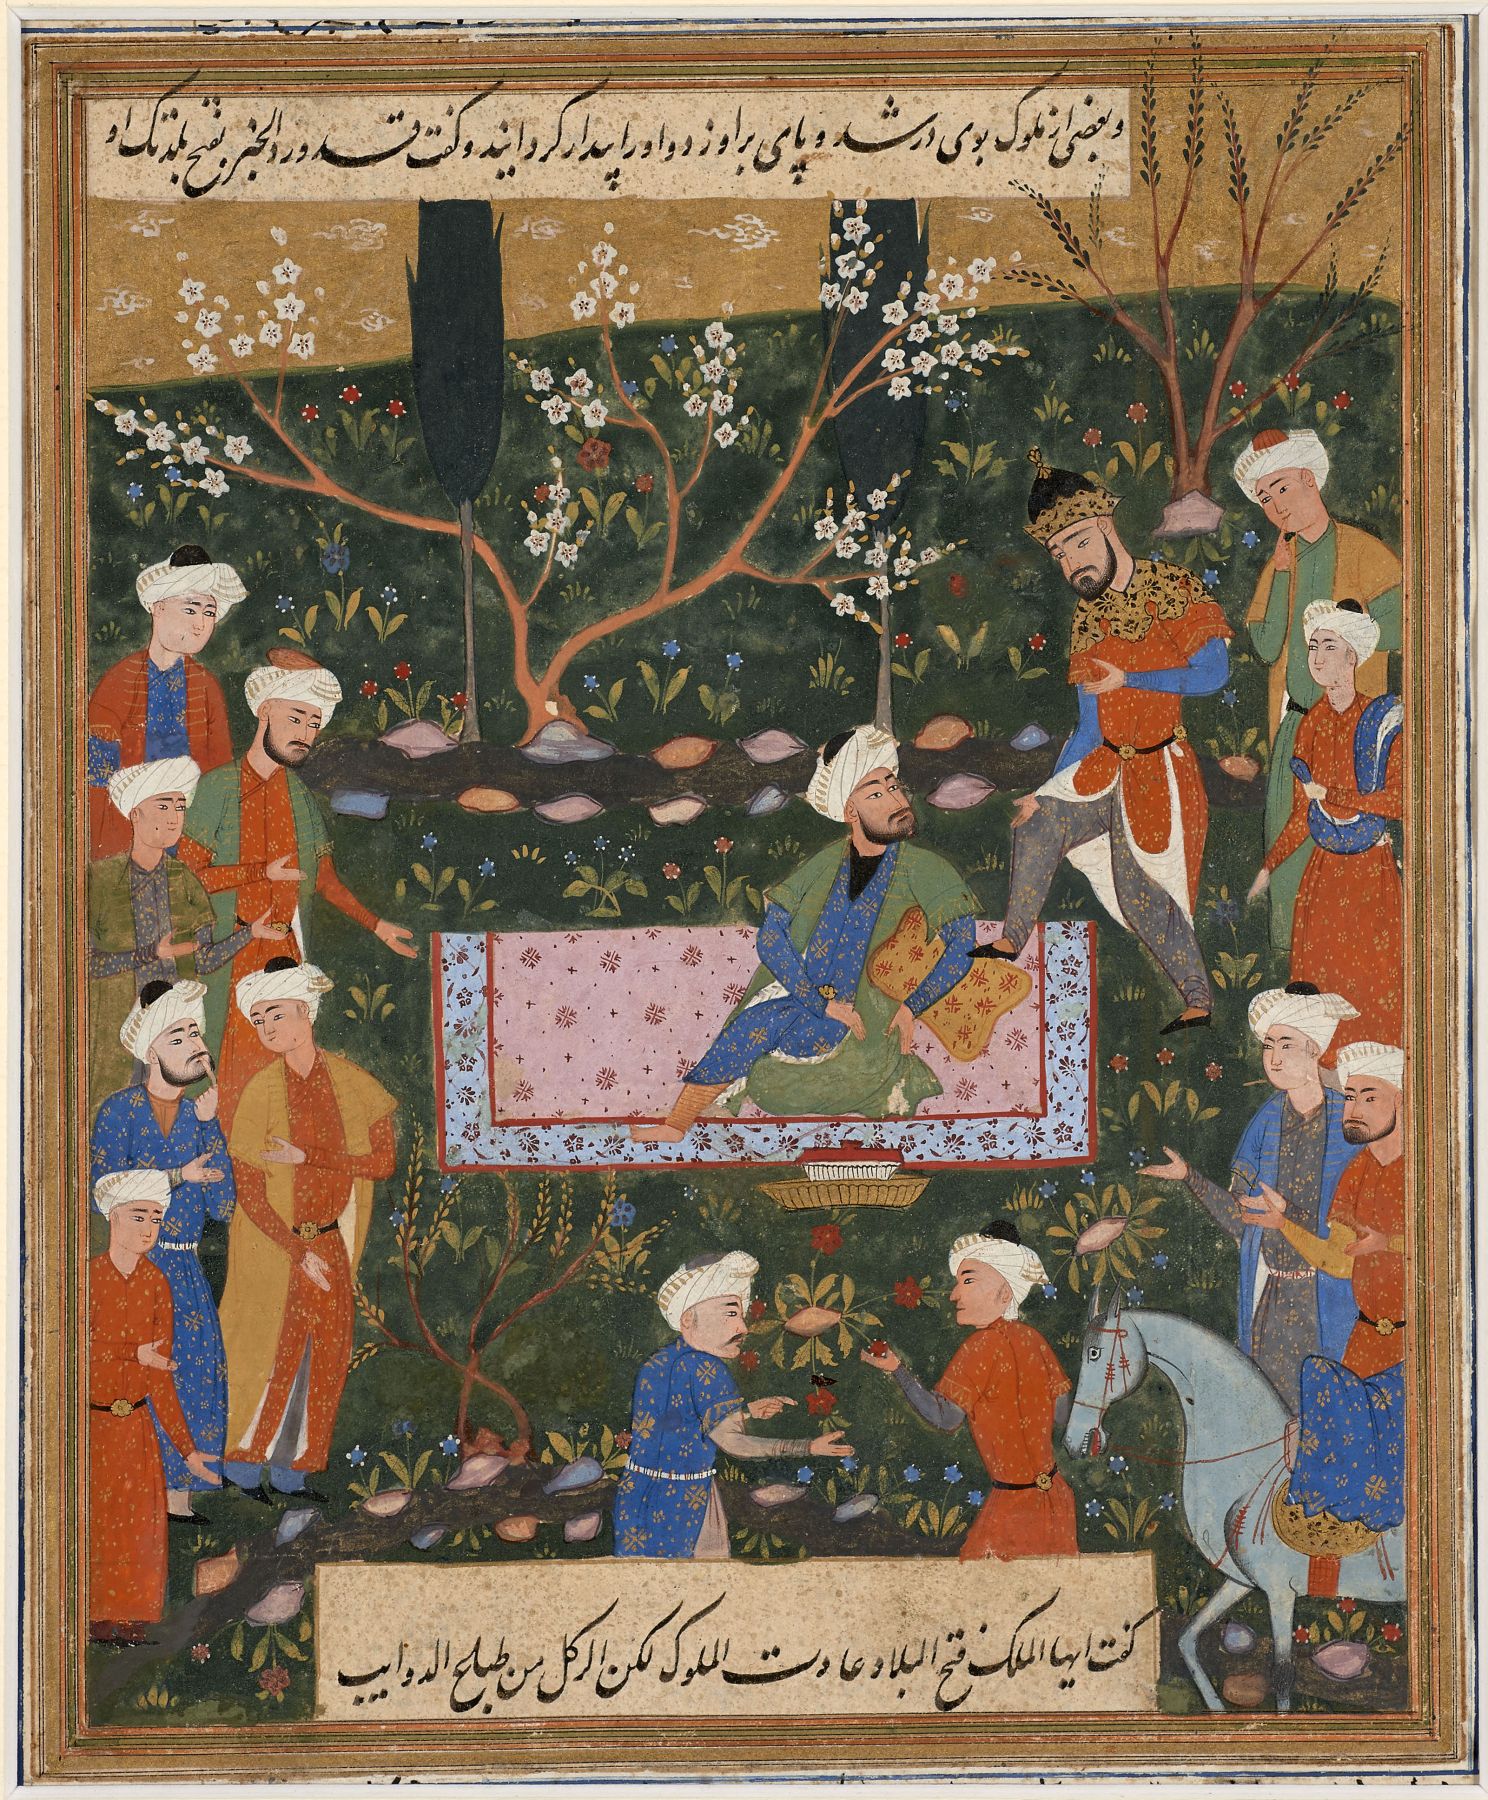 و بعضی از ملوک بوی در شد و پای بر او زد و او را پیدار کردانید و کفت قد ورد الخبر بفتح بلدتک او
کفت ایها الملک فتح البلاد عادت الملوک لکن الرکل من طبلح الدواب